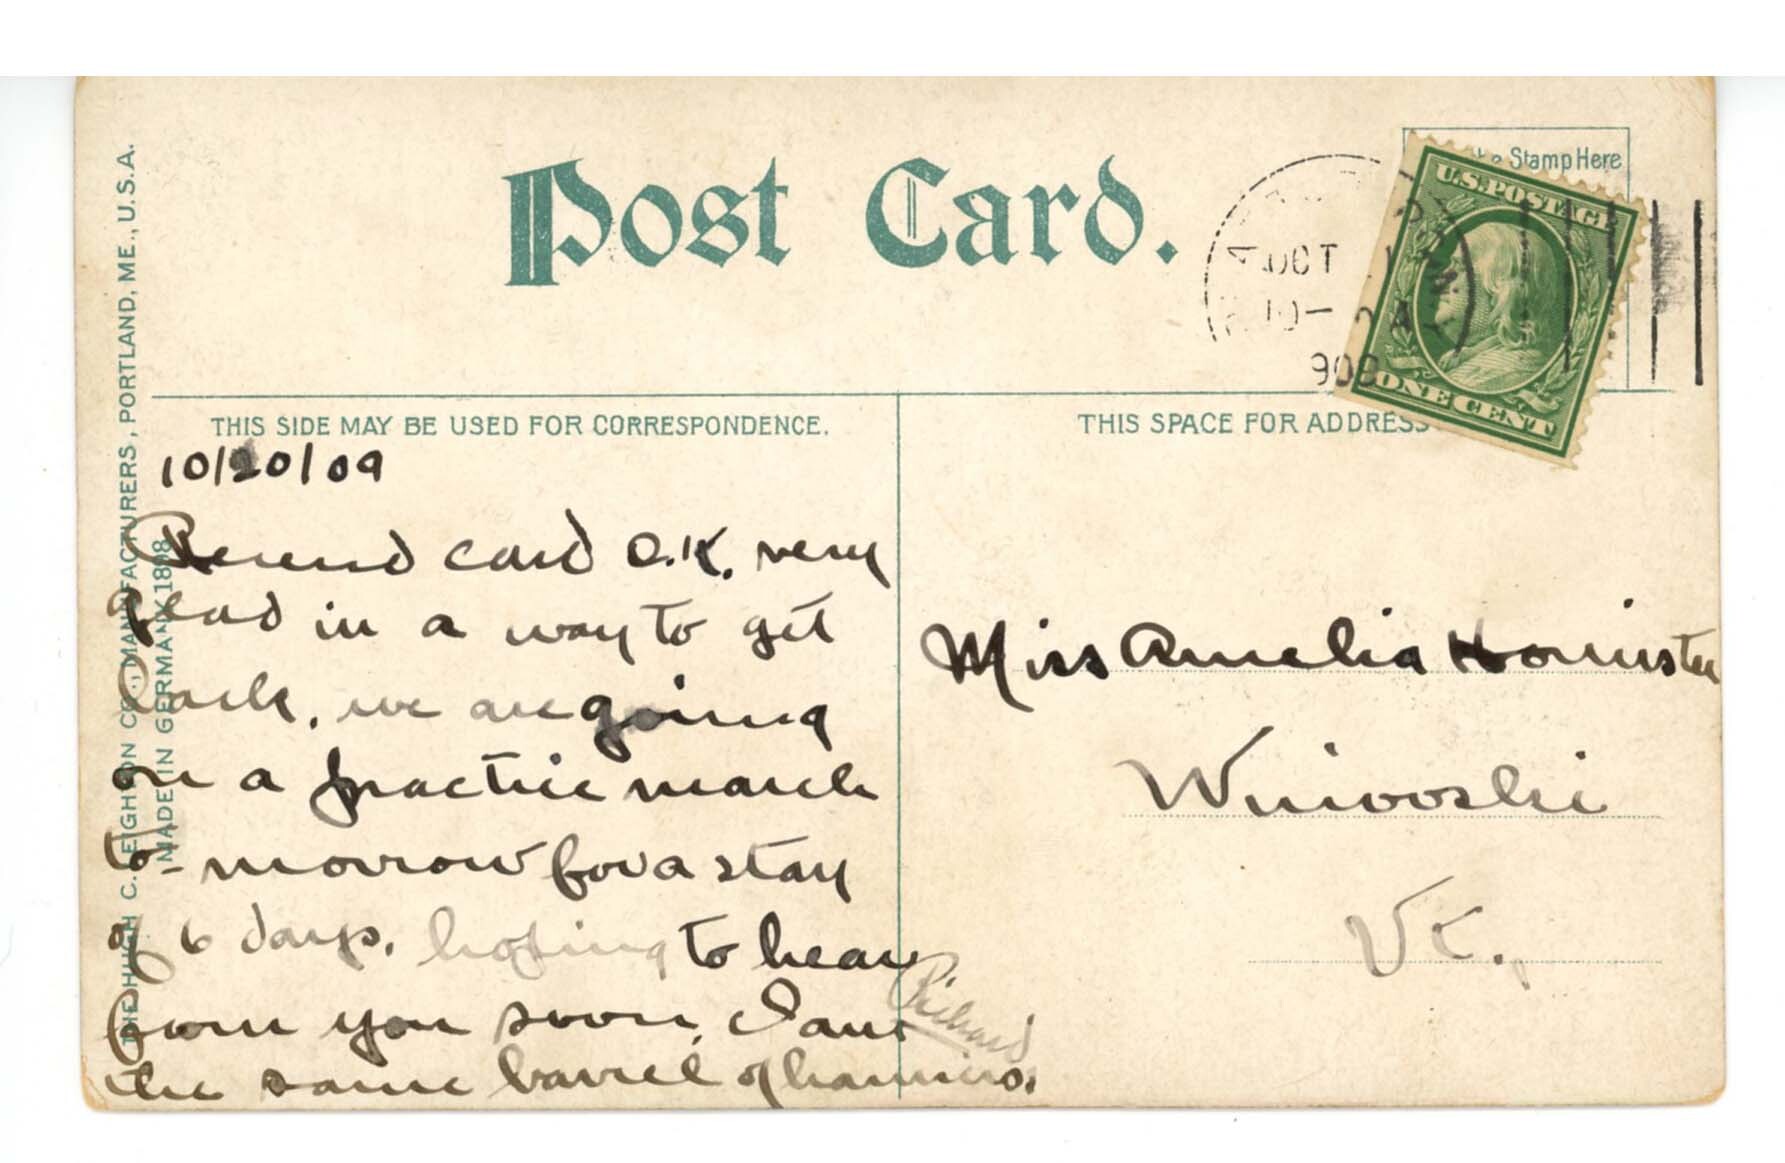 Post Card.
Stamp Here
U.S. POSTAGE
ONE CENT
OCT
THIS SIDE MAY BE USED FOR CORRESPONDENCE.
THIS SPACE FOR ADDRESS
THE HUGH C. LEIGHTON CO., MANUFACTURERS, PORTLAND, ME., U.S.A.
MADE IN GERMANY
10/20/09
card O.K. very
glad in a way to get
back, we are going
on a practice march
to-morrow for a stay
of 6 days. hoping to hear
from you soon, I am
the same barrel of
Richard
Miss Amelia
Winooski
Vt.